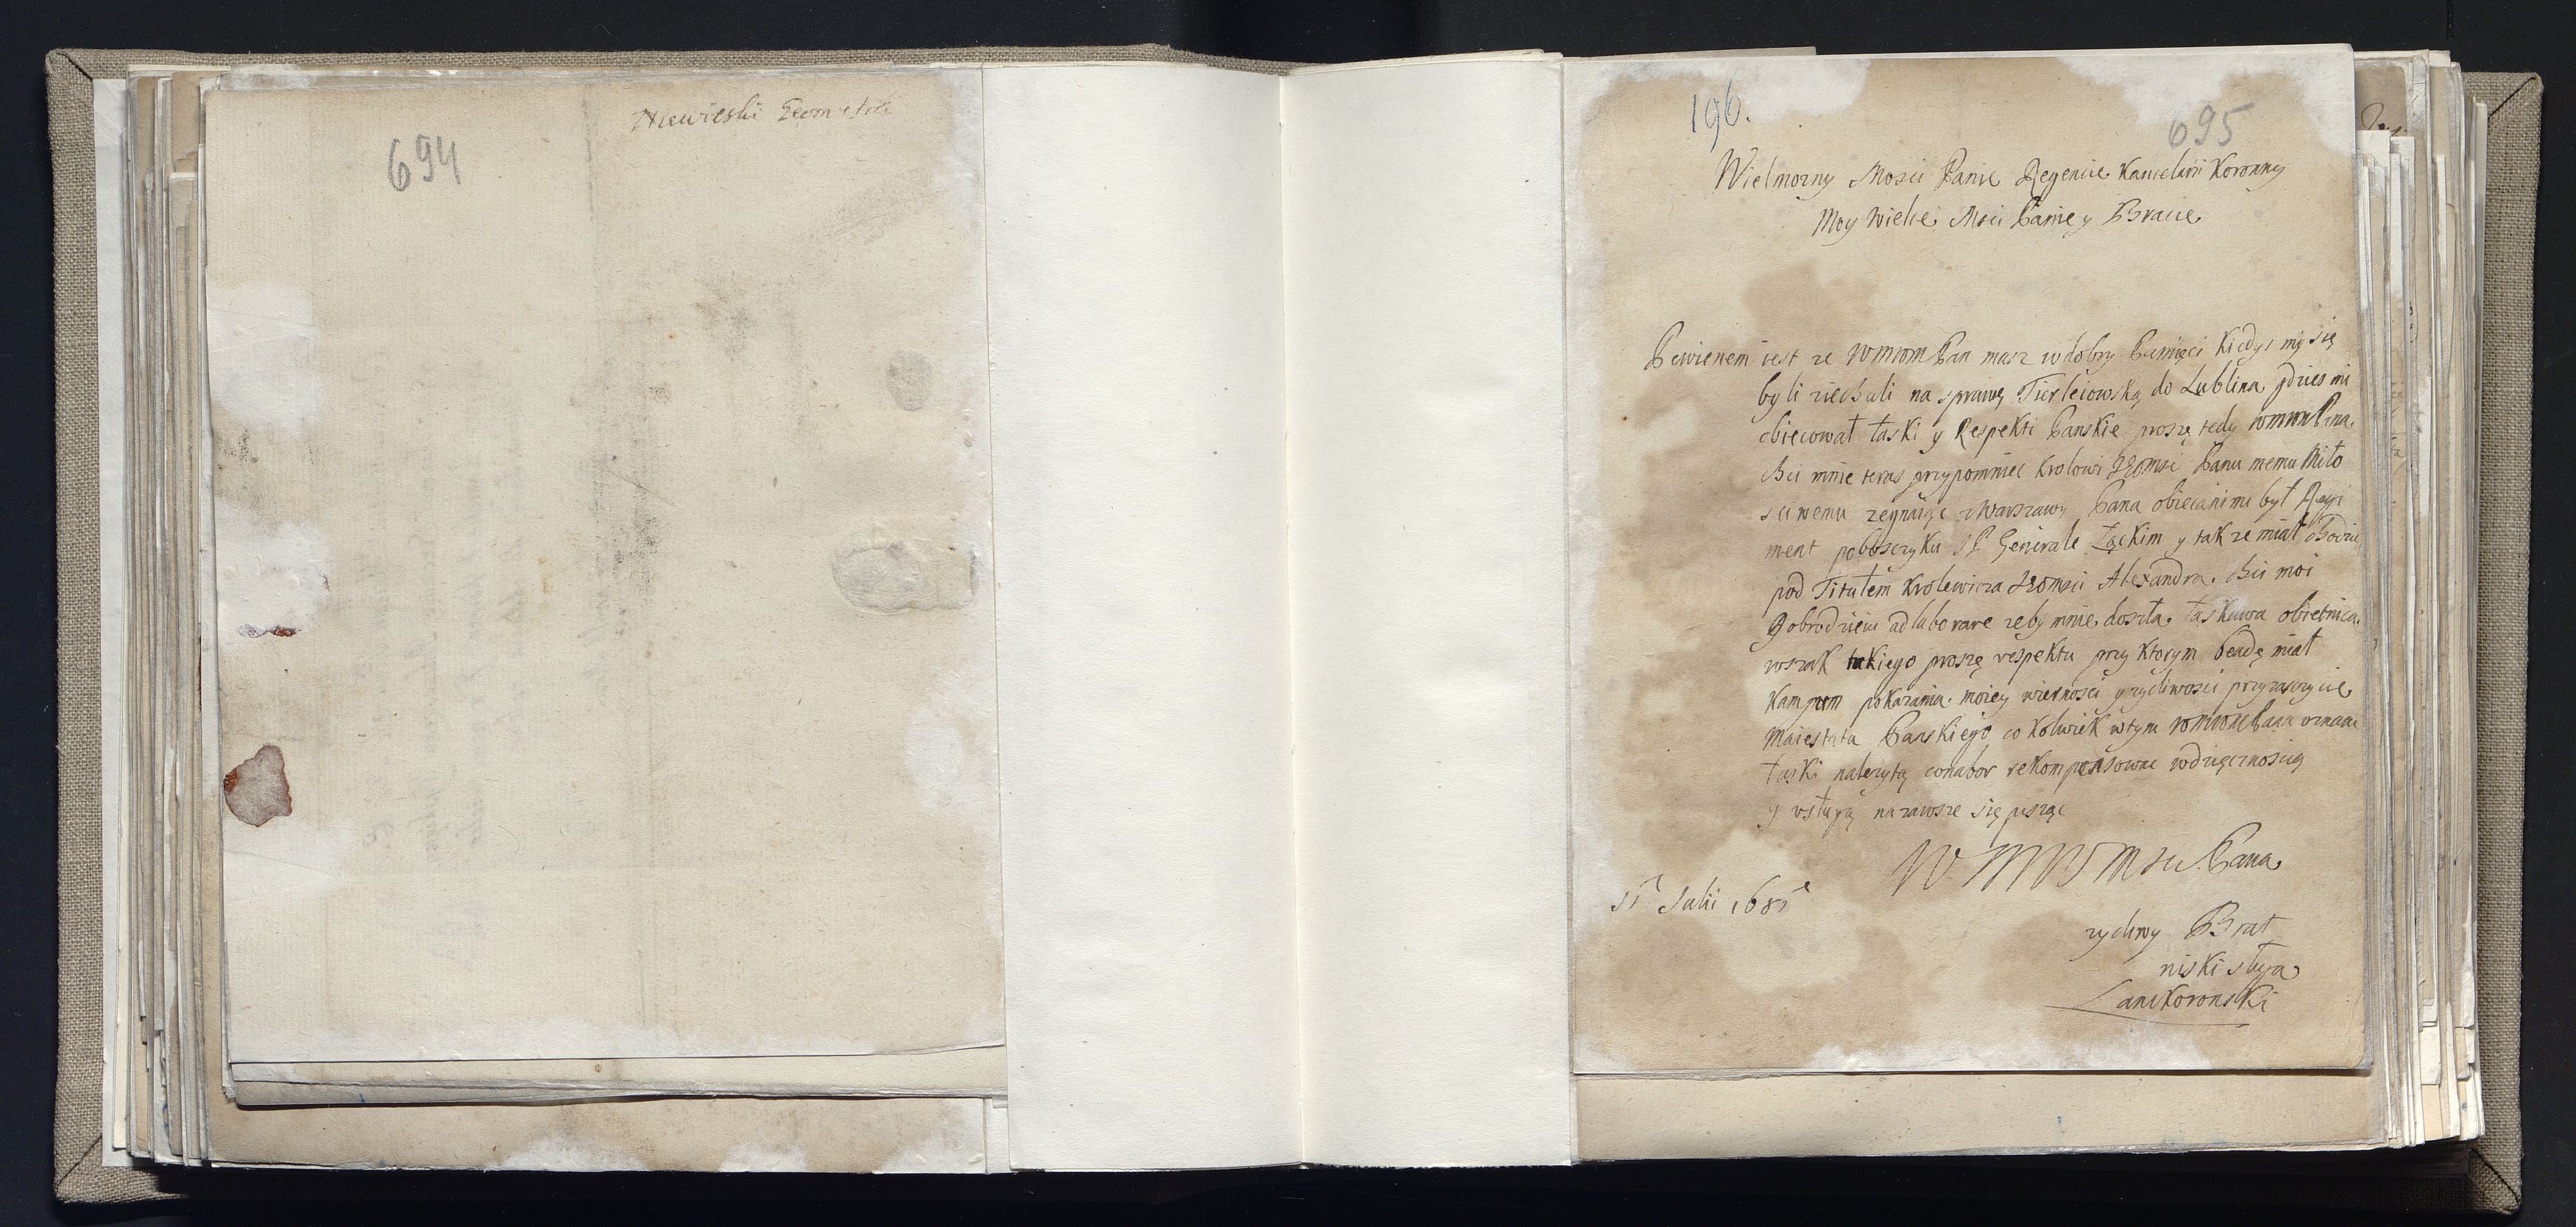 694
Niewieski Geometra
196.
695
Wielmozny Mosci Panie Regencie Kancelarii Koronny
Moy Wielce Msci Panie y Bracie
Pewienem iest ze WMWM Pan masz w dobry Pamięci kiedys my się
byli ziechali na sprawę Firleiowską do Lublina, zdzies mi
obiecował łaski y Respekti Panskie proszę tedy WMWM Pana
chci mnie teras przypomniec Krolowi JEomsci Panu memu Miło
sciwemu zegnaiąc z Warszawy Pana obiecani mi był Regi
ment poboszczyku S P Generale Łąckim y tak ze miał chodzic
pod Titułem Krolewicza JEomsci Alexandra. chci moi
Dobrodzieiu adlaborare zeby mnie doszła łaskawa obietnica.
wszak takiego proszę respektu przy ktorym bendę miał
kampum pokazania moiey wiernosci y zycliwosci przy zaszczycie
Maiestatu Panskiego co kolwiek w tym WMWM Pana oznam
łaski nalezytą conabor rekompensowac wdzięcznoscią
y usługą na zawsze się pisząc
W M W Msci Pana
Julii 1685
zycliwy Brat
niski sługa
Lanckoronski